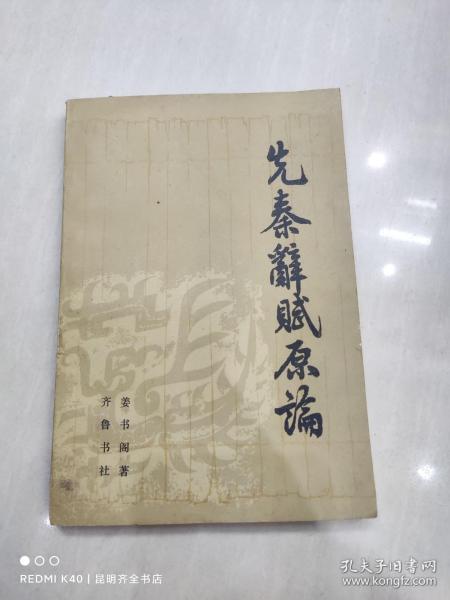 先秦辭賦原論
姜书阁著
齐鲁书社
REDMI K40 | 昆明齐全书店
孔夫子旧书网
www.kongfz.com